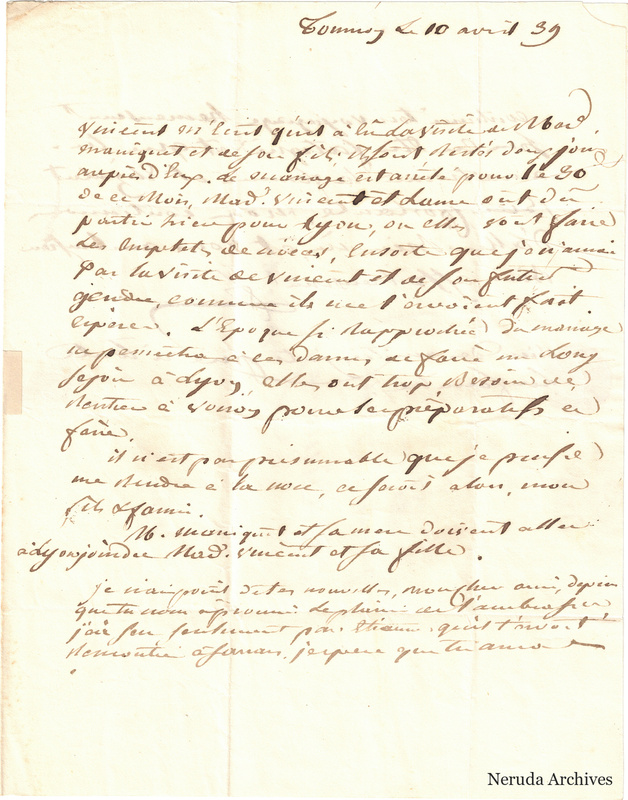 Le 10 avril 39
Vincent m'écrit qu'il a eu La visite de Mad.
maniquet et de son fils. ils sont restés deux jours
auprès d'Eux. Le mariage est arrêté pour le 30
de ce Mois, Mad.e Vincent et Laure ont dû
partir hier pour Lyon, où elles vont faire
Les Emplettes de nôces, Ensorte que je n'aurai
Pas la visite de Vincent et de son futur
gendre, comme ils me l'avoient fait
espérer. L'Epoque si Rapprochée du mariage
ne permettra à ces dames de faire un Long
séjour à Lyon, elles ont trop Besoin de
Rentrer à pour les préparatifs à
faire.
il n'est pas présumable que je puisse
me Rendre à la noce, ce seroit alors, mon
fils &
M. maniquet et sa mère doivent aller
à Lyon joindre Mad.e Vincent et sa fille.
je n'ai point de tes nouvelles, mon cher ami, depuis
que tu nous Le plaisir de t'embrasser,
j'ai su seulement par Etienne qu'il t'avoit
Rencontré à j'espère que tu auras
Neruda Archives